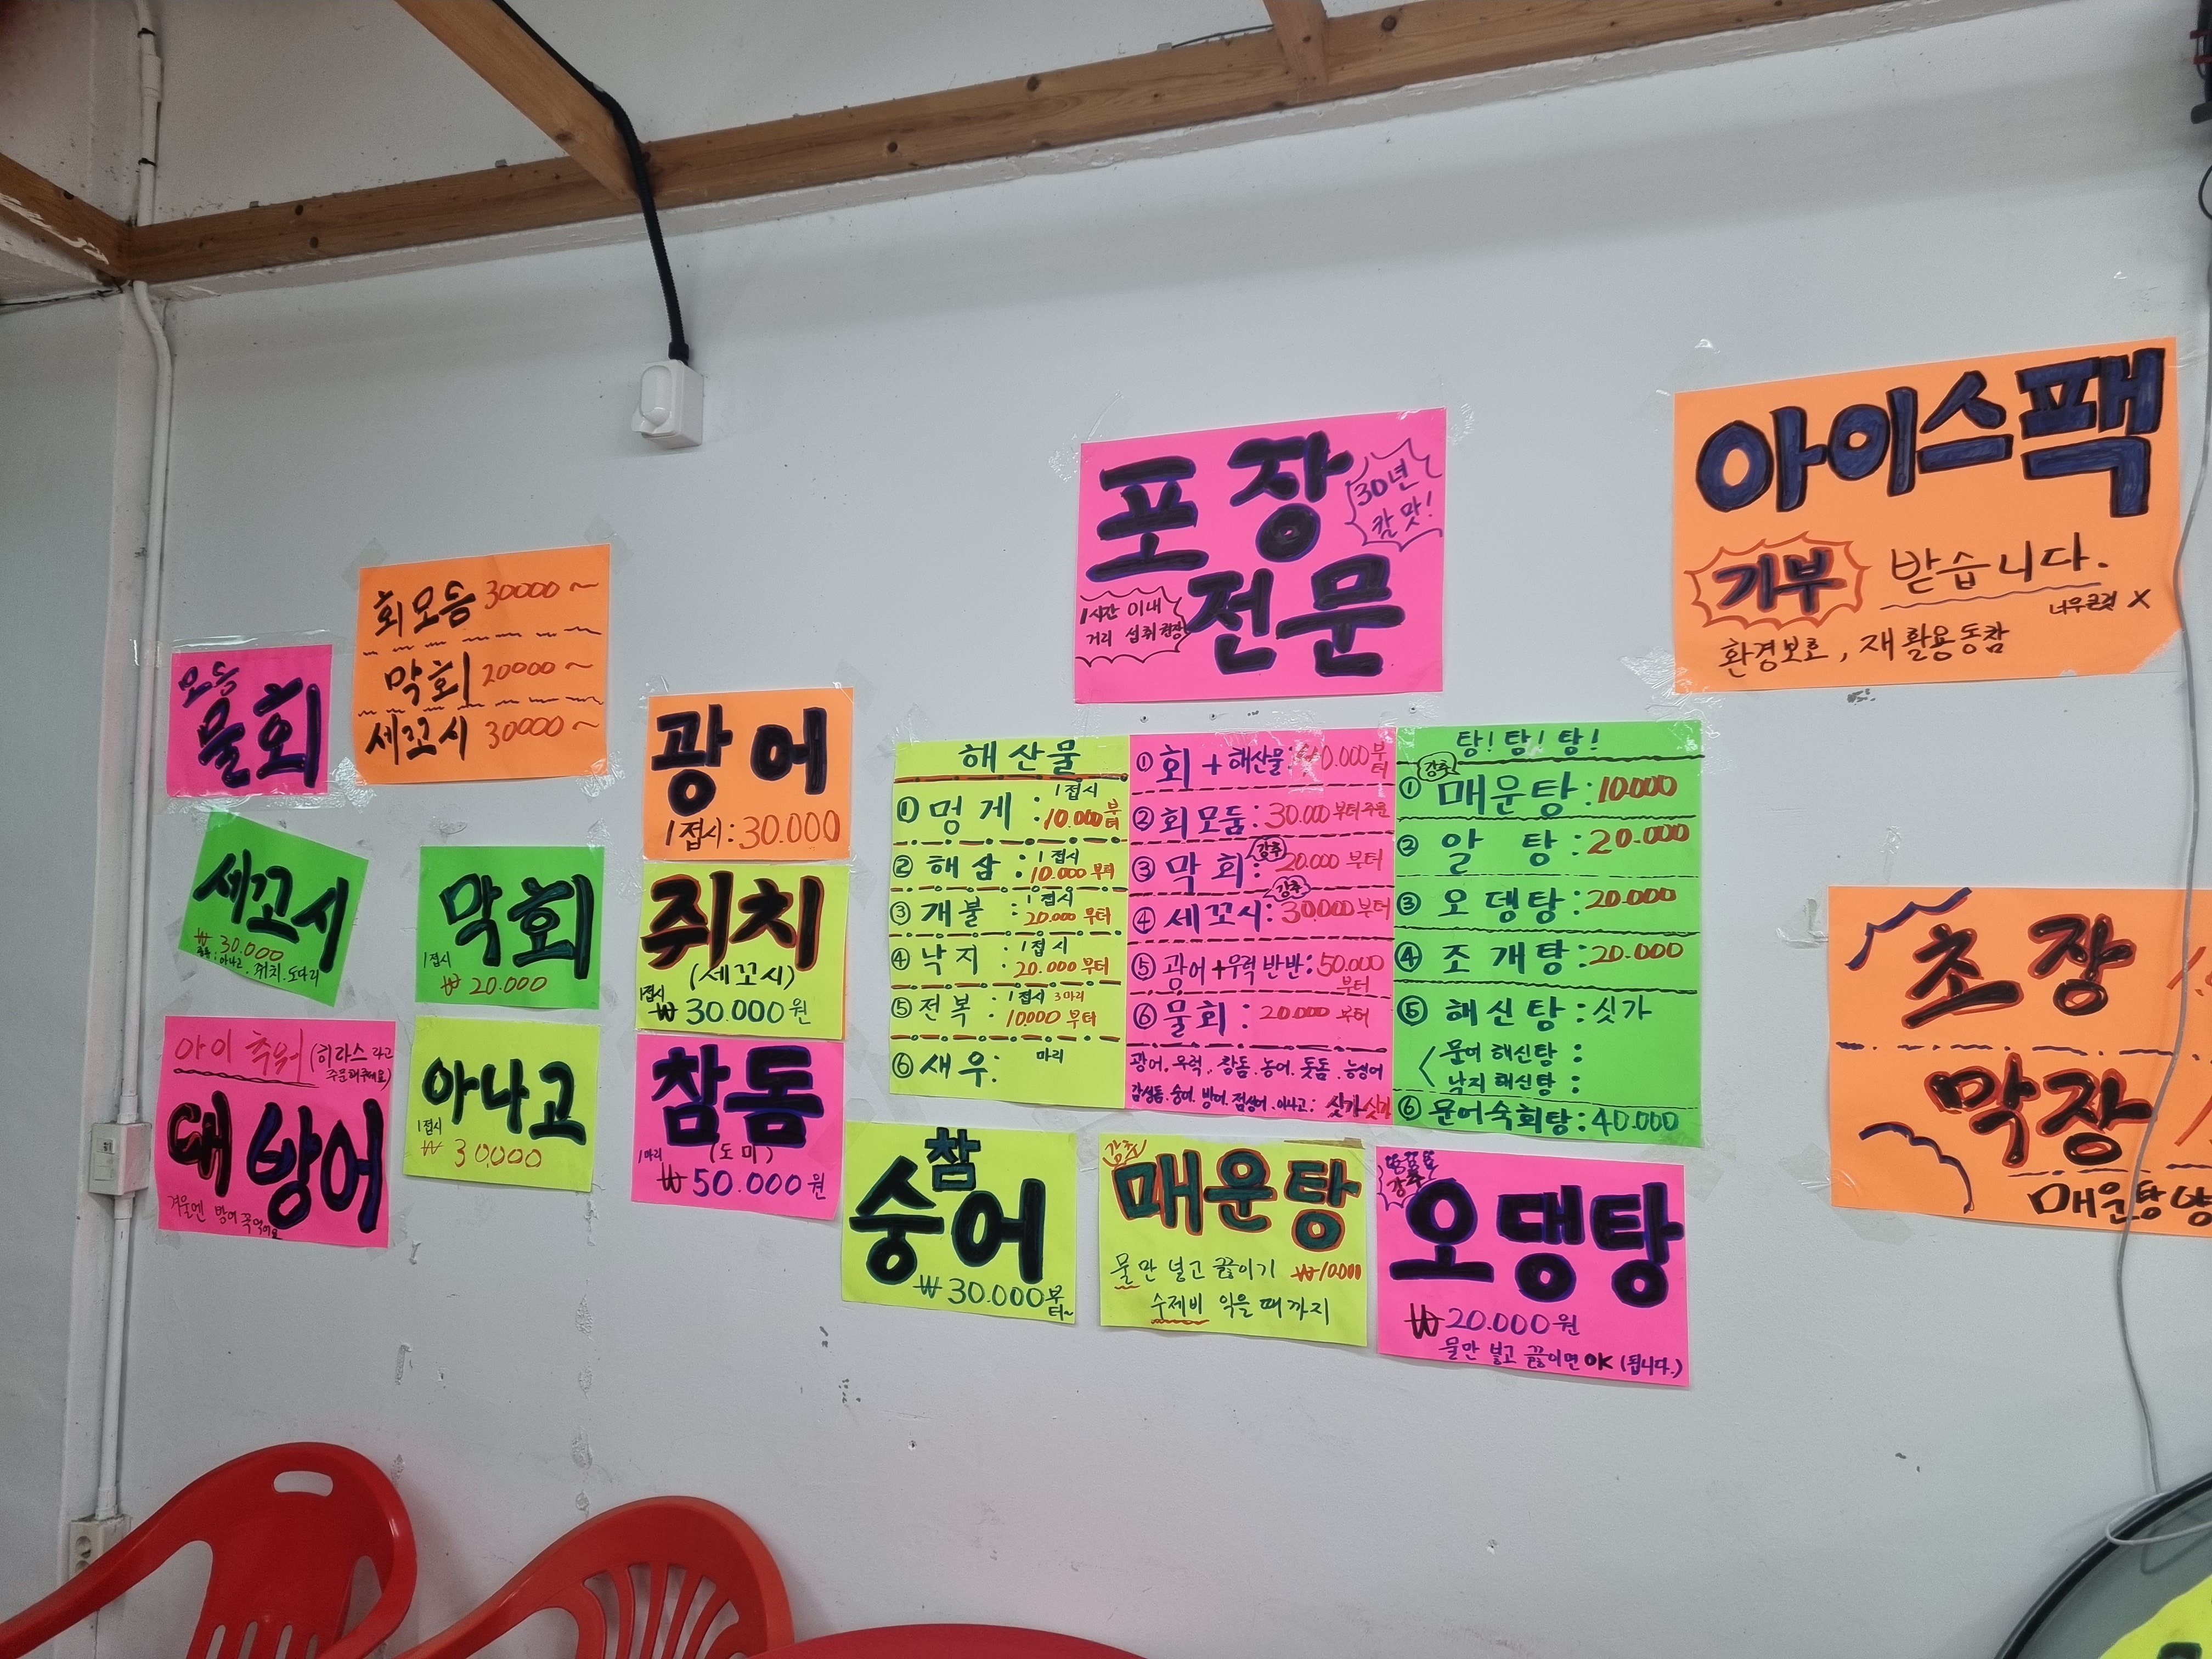 모듬
물회
회모듬 30000~
막회 20000~
세꼬시 30000~
세꼬시
₩ 30.000
아나고. 쥐치. 도다리
막회
1접시
₩ 20.000
(히라스라고
주문해주세요)
대방어
겨울엔 방어 꼭먹어요
아나고
1접시
₩ 30,000
광어
1접시:30.000
쥐치
(세꼬시)
1접시
₩ 30.000원
참돔
(도미)
1마리
₩ 50.000원
포장
전문
30년
칼맛!
1시간 이내
거리 섭취권장
아이스팩
기부 받습니다.
너무큰것 X
환경보호, 재활용동참
해산물
① 멍게 : 1접시 10.000부터
② 해삼 : 1접시 10.000부터
③ 개불 : 1접시 20.000부터
④ 낙지 : 1접시 20.000부터
⑤ 전복 : 1접시 3마리 10.000부터
⑥ 새우: 마리
① 회+해산물: 0.000부터
② 회모둠: 30.000부터주문
③ 막회: 강추 20.000부터
④ 세꼬시: 강추 30000부터
⑤ 광어+우럭반반: 50.000부터
⑥ 물회: 20.000부터
광어. 우럭. 참돔. 농어. 돗돔. 능성어
감성돔. 숭어. 방어. 점성어. 아나고: 싯가
탕! 탕! 탕!
강추
① 매운탕: 10.000
② 알탕: 20.000
③ 오뎅탕: 20.000
④ 조개탕: 20.000
⑤ 해신탕: 싯가
문어 해신탕 :
낙지 해신탕 :
⑥ 문어숙회탕: 40.000
참
숭어
₩ 30.000부터~
강추
매운탕
물만 넣고 끓이기 ₩10.000
수제비 익을때까지
강추
오댕탕
₩20.000원
물만 넣고 끓이면 OK (됩니다.)
초장
막장
매운탕양